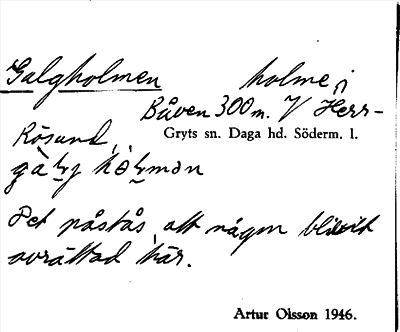 Galgholmen holme i
Båven 300 m. V Herr-
Rösund,
Gryts sn. Daga hd. Söderm. l.
Det påstås, att någon blivit
avrättad här.
Artur Olsson 1946.